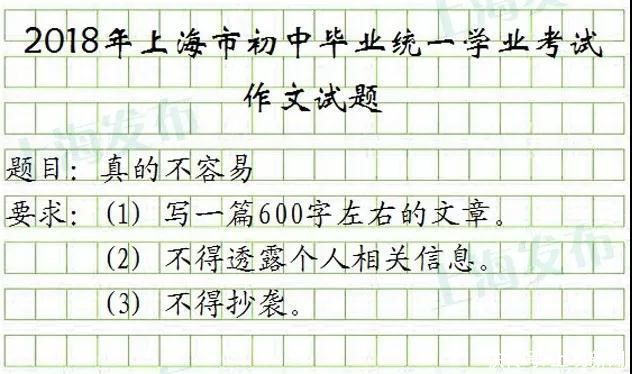 2018年上海市初中毕业统一学业考试
作文试题
题目：真的不容易
要求：（1）写一篇600字左右的文章。
（2）不得透露个人相关信息。
（3）不得抄袭。
上海发布
上海发布